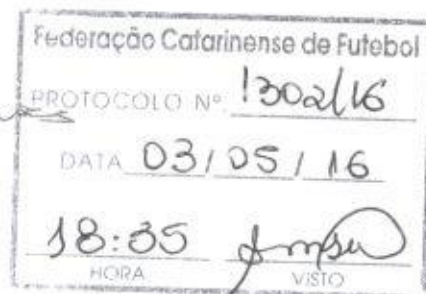 Federação Catarinense de Futebol
PROTOCOLO Nº 1302/16
DATA 03/05/16
18:35
HORA VISTO